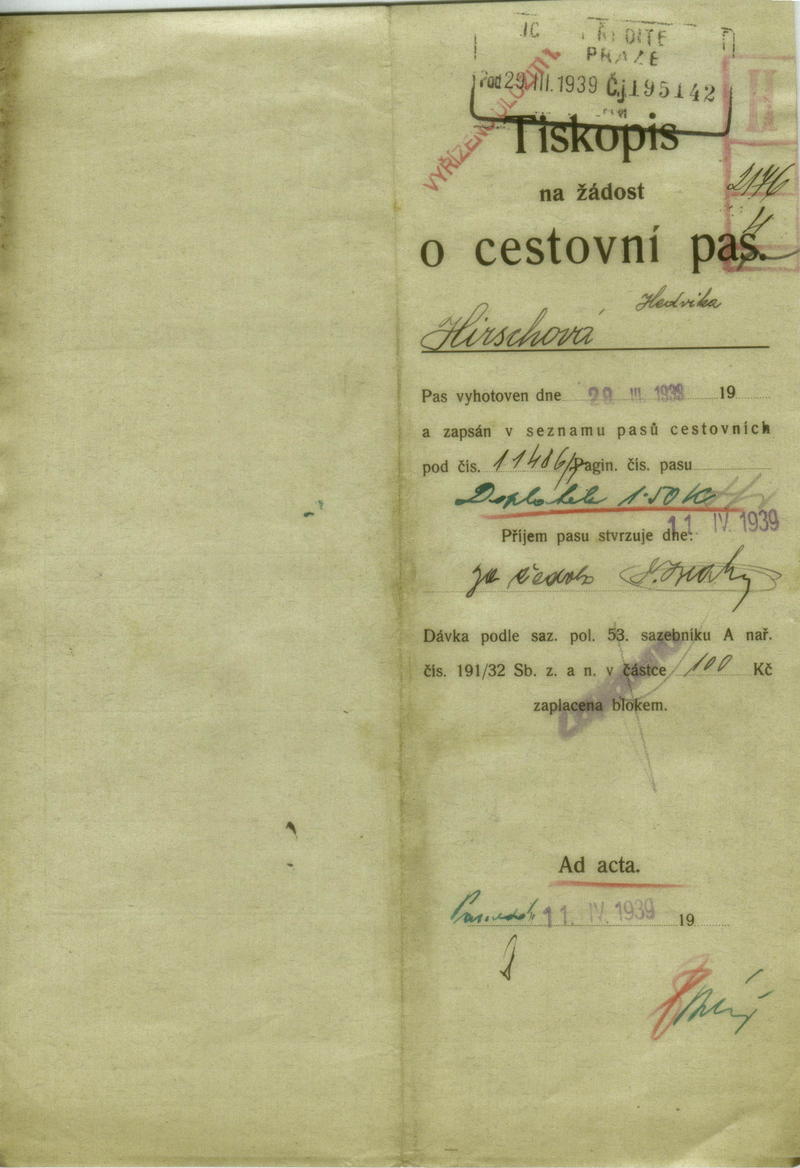 PRAZE
Pod 29. III. 1939 Čj 195142
VYŘÍZENO ULOŽITI
H
Tiskopis
2176
4
na žádost
o cestovní pas.
Hedvika
Hirschová
Pas vyhotoven dne 29. III. 1939 19
a zapsán v seznamu pasů cestovních
pod čís. 11486 Pagin. čís. pasu
1·50 Kč
11. IV. 1939
Příjem pasu stvrzuje dne:
za
Dávka podle saz. pol. 53. sazebníku A nař.
čís. 191/32 Sb. z. a n. v částce 100 Kč
zaplacena blokem.
Ad acta.
11. IV. 1939 19